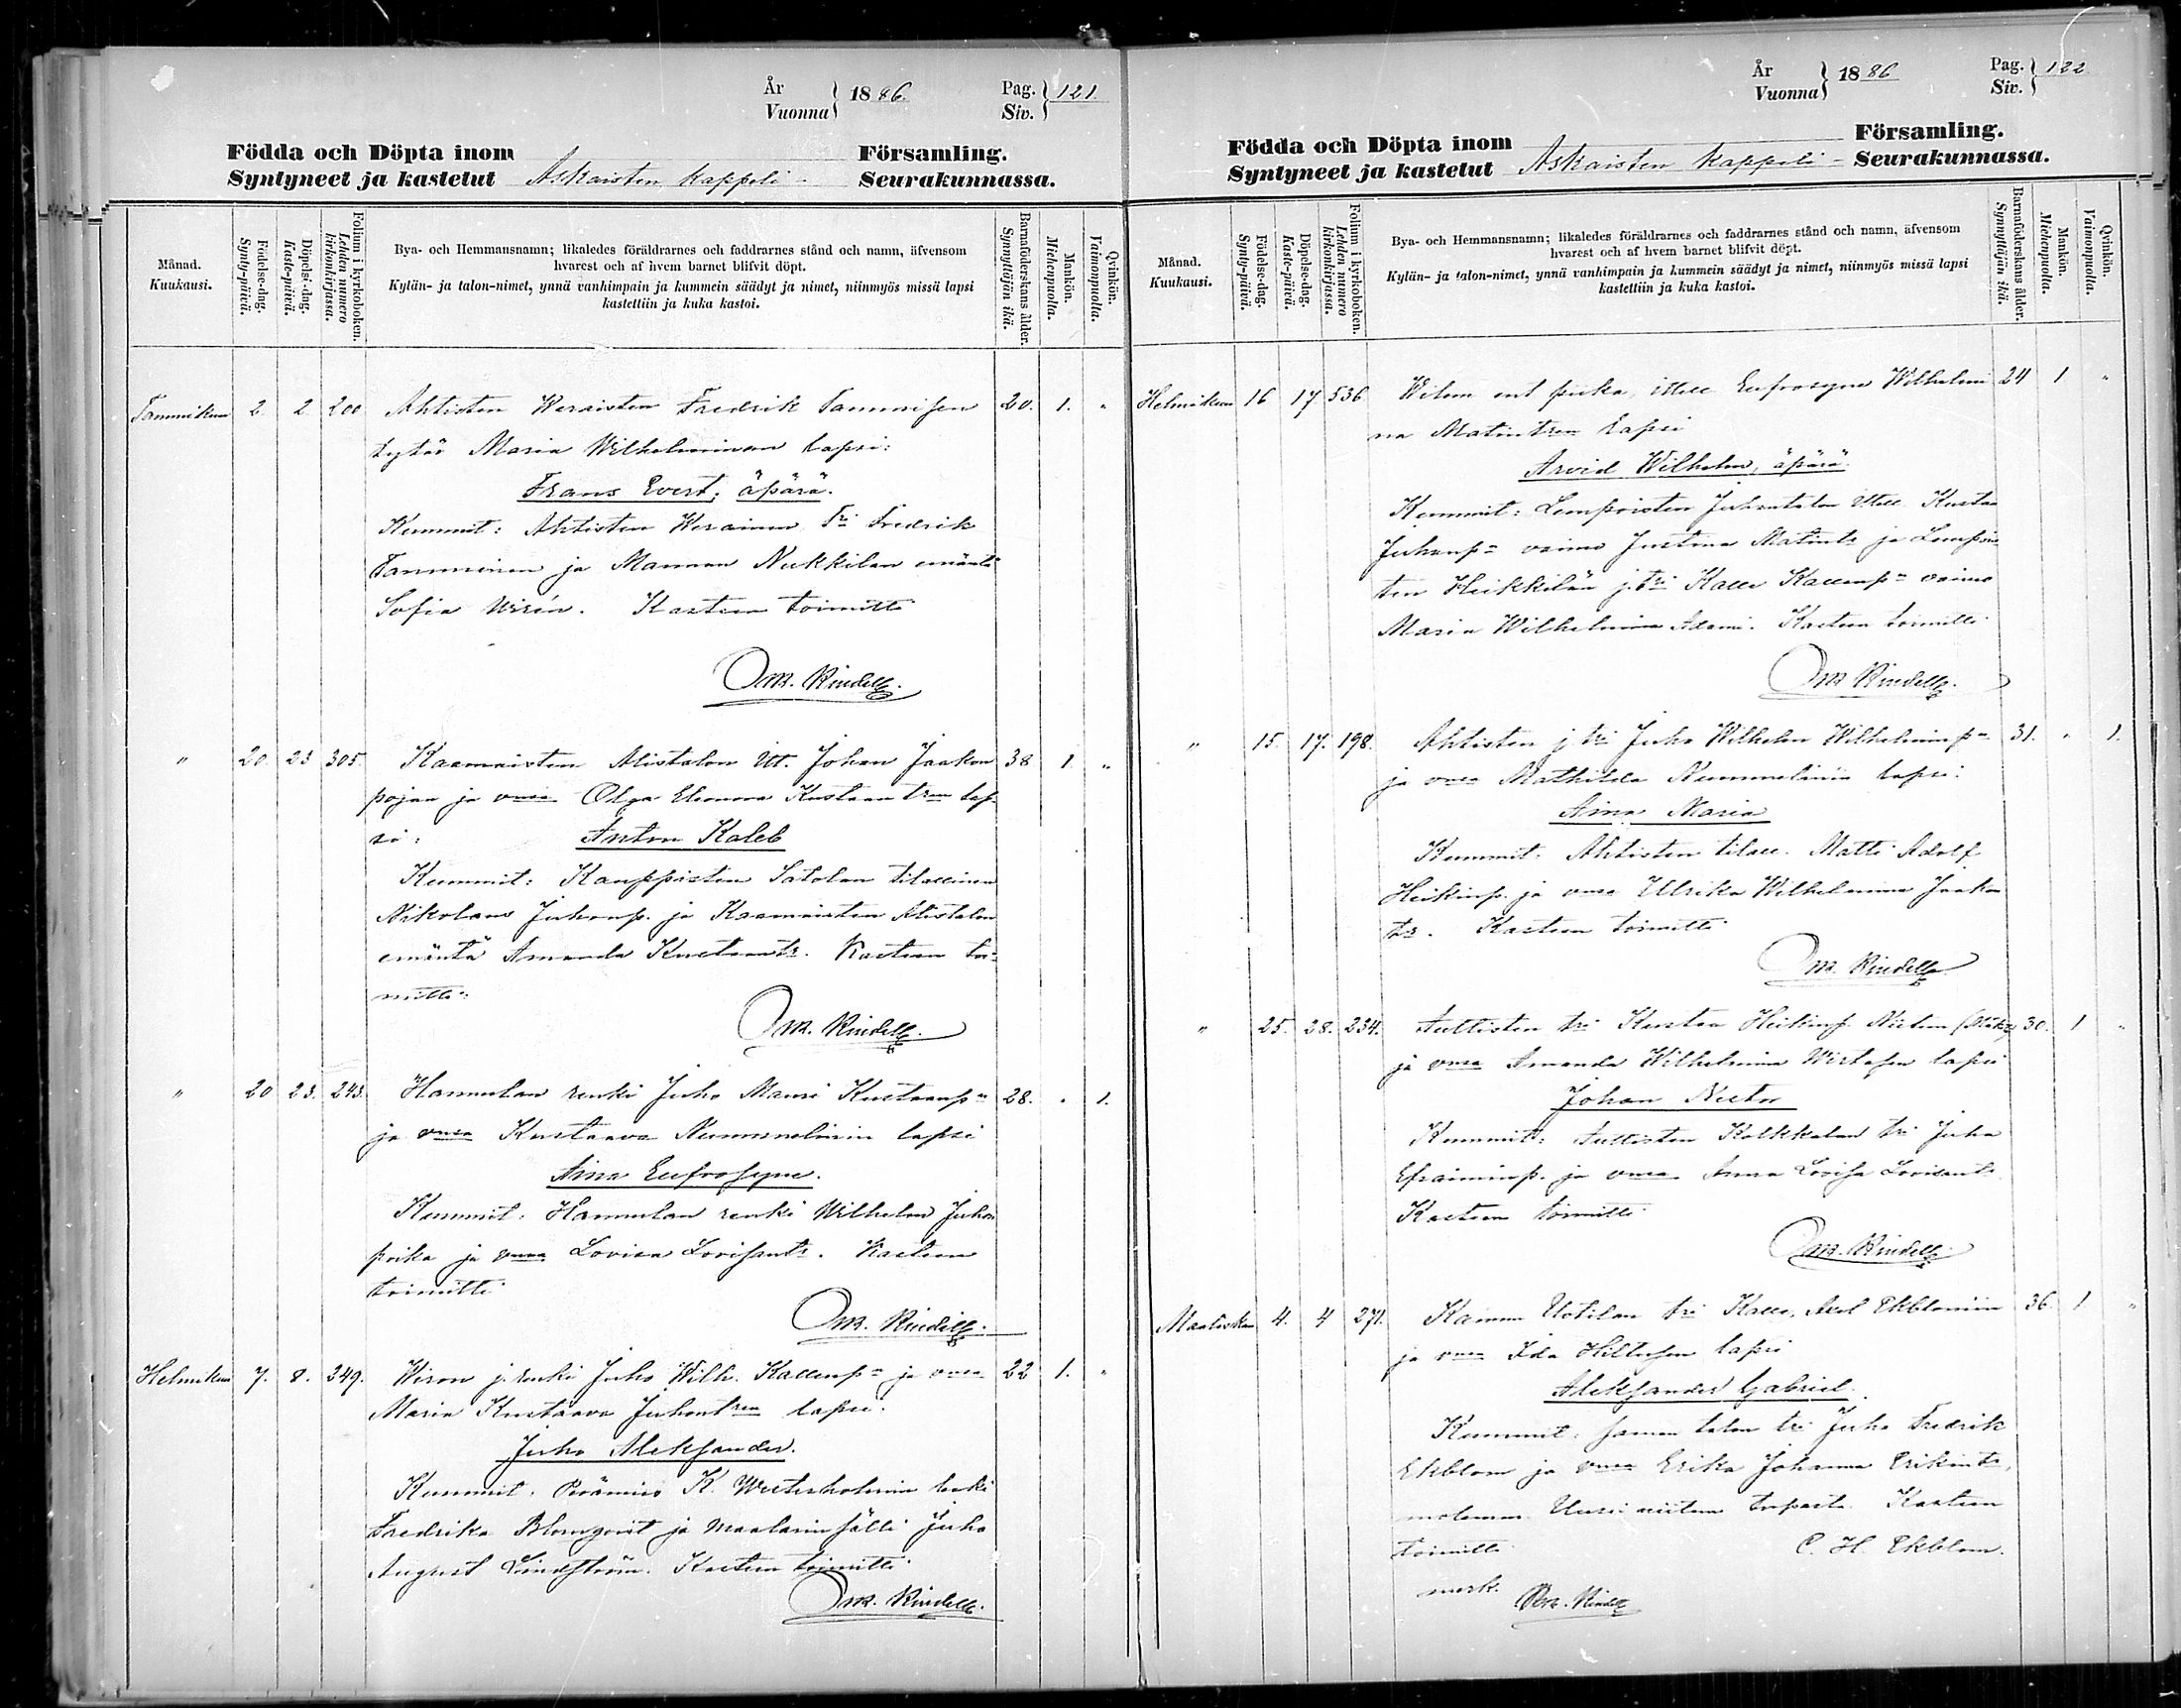 År
Vuonna } 1886. Pag.
Siv. } 121.
Födda och Döpta inom Församling.
Syntyneet ja kastetut Askaisten kappeli- Seurakunnassa.
Månad.
Kuukausi.
Födelse-dag.
Synty-päivä.
Döpelse-dag.
Kaste-päivä.
Folium i kyrkoboken.
Lehden numero
kirkonkirjassa.
Bya- och Hemmansnamn; likaledes föräldrarnes och faddrarnes stånd och namn, äfvensom
hvarest och af hvem barnet blifvit döpt.
Kylän- ja talon-nimet, ynnä vanhimpain ja kummein säädyt ja nimet, niinmyös missä lapsi
kastettiin ja kuka kastoi.
Barnaföderskans ålder.
Synnyttäjän ikä.
Mankön.
Miehenpuolta.
Qvinkön.
Vaimonpuolta.
Tammikuu 2. 2 200 Ahtisten Weraisten Fredrik Tammisen 20. 1. "
tytär Maria Wilhelminan lapsi:
Frans Evert, äpärä.
Kummit: Ahtisten Werainen Tri Fredrik
Tamminen ja Mannun Nukkilan emäntä
Sofia Wirén. Kasteen toimitti
Om. Rindell.
" 20. 23 305. Kaamaisten Alistalon Itt. Johan Jaakon 38 1 "
pojan ja vmsa Olga Eleonora Kustaan tren lap-
si: Anton Kaleb
Kummit: Kauppisten Satolan tilallinen
Nikolaus Juhonp. ja Kaamaisten Alistalon
emäntä Amanda Kustaantr. Kasteen toi-
mitti:
Om. Rindell.
" 20 23. 243. Hannulan renki Juho Mauri Kustaanpn 28. " 1.
ja vmsa Kustaava Nummelinin lapsi
Aina Eufrosyne.
Kummit: Hannulan renki Wilhelm Juhon
poika ja vmsa Lovisa Lovisantr. Kasteen
toimitti
Om. Rindell.
Helmikuu 7. 8. 349. Wiron j. renki Juho Wilh. Kallenpn ja vmsa 22 1. "
Maria Kustaava Juhontren lapsi:
Juho Aleksander.
Kummit: K. Westerholmin leski
Fredrika Blomqvist ja Maalarin sälli Juho
August Lindström. Kasteen toimitti
Om. Rindell.
År
Vuonna } 1886 Pag.
Siv. } 122
Födda och Döpta inom Församling.
Syntyneet ja kastetut Askaisten kappeli- Seurakunnassa.
Månad.
Kuukausi.
Födelse-dag.
Synty-päivä.
Döpelse-dag.
Kaste-päivä.
Folium i kyrkoboken.
Lehden numero
kirkonkirjassa.
Bya- och Hemmansnamn; likaledes föräldrarnes och faddrarnes stånd och namn, äfvensom
hvarest och af hvem barnet blifvit döpt.
Kylän- ja talon-nimet, ynnä vanhimpain ja kummein säädyt ja nimet, niinmyös missä lapsi
kastettiin ja kuka kastoi.
Barnaföderskans ålder.
Synnyttäjän ikä.
Mankön.
Miehenpuolta.
Qvinkön.
Vaimonpuolta.
Helmikuu 16 17 536 ent piika, itsell. Eufrosyne Wilhelmi 24 1 "
na Matintren lapsi
Arvid Wilhelm, äpärä.
Kummit: Lempoisten Juhantalon Itsell. Kustaa
Juhanpn vaimo Justina Matintr ja Lempois-
ten Heikkilän j. tri Kalle Kallenpn vaimo
Maria Wilhelmina Adami. Kasteen toimitti
Om Rindell.
" 15. 17. 198. Ahtisten j. tri Juho Wilhelm Wilhelminpn 31. " 1.
ja vmsa Mathilda Nummelinin lapsi:
Aina Maria
Kummit: Ahtisten tilall. Matti Adolf
Heikinp. ja vmsa Ulrika Wilhelmina Jaakon
tr. Kasteen toimitti
Om. Rindell
" 25. 28. 234. Autisten tri Kustaa Heikinp. 30. 1 "
ja vmsa Amanda Wilhelmina Wirtasen lapsi
Johan Nestor
Kummit: Autisten Kolkkalan tri Juha
Efraiminp. ja vmsa Anna Lovisa Lovisantr.
Kasteen toimitti
Om. Rindell.
Maalisku 4. 4 271. Kamun Uotilan tri Kalle, Axel Ekblomin 36. 1 "
ja vmsa Ida Hiltusen lapsi
Aleksander Gabriel.
Kummit: saman talon tri Juho Fredrik
Ekblom ja vmsa Erika Johanna Erikintr,
molemmat Uusi niitun torpasta. Kasteen
toimitti C. H. Ekblom.
merk. Om. Rindell